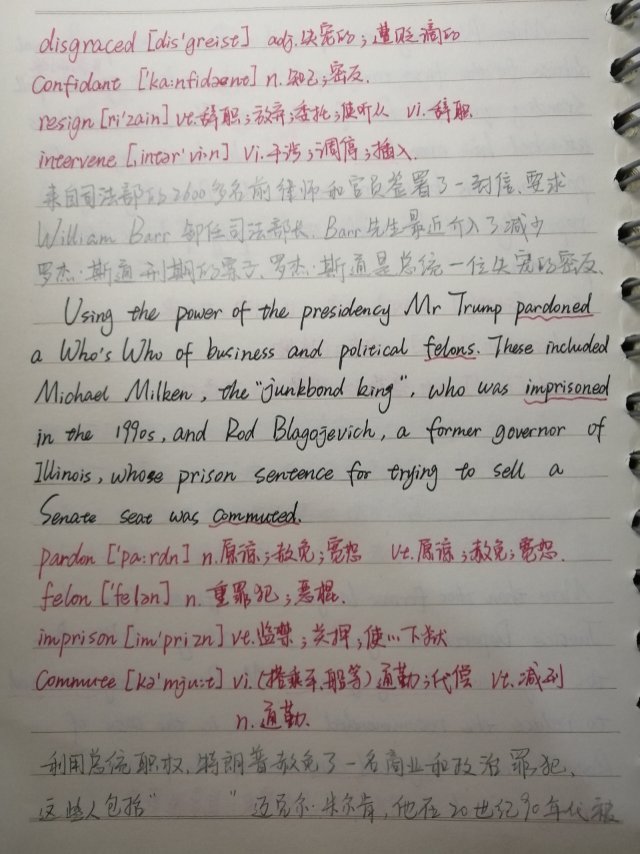 disgraced [dis'greist] adj.失宠的;遭贬谪的
Confidant ['ka:nfidænt] n.知己;密友.
resign [ri'zain] vt.辞职;放弃;委托;使听从 vi.辞职
intervene [,intər'vi:n] vi.干涉;调停;插入.
来自司法部的2600多名前律师和官员签署了一封信,要求
William Barr 卸任司法部长. Barr先生最近介入了减少
罗杰·斯通刑期的案子.罗杰·斯通是总统一位失宠的密友.
Using the power of the presidency Mr Trump pardoned
a Who's Who of business and political felons. These included
Michael Milken, the "junkbond king", who was imprisoned
in the 1990s, and Rod Blagojevich, a former governor of
Illinois, whose prison sentence for trying to sell a
Senate seat was commuted.
pardon ['pa:rdn] n.原谅;赦免;宽恕 vt.原谅;赦免;宽恕.
felon ['felən] n.重罪犯;恶棍.
imprison [im'prizn] vt.监禁;关押;使…下狱
Commute [kə'mju:t] vi.(搭乘车、船等)通勤;代偿 vt.减刑
n.通勤.
利用总统职权,特朗普赦免了一名商业和政治罪犯.
这些人包括" "迈克尔·米尔肯,他在20世纪90年代被